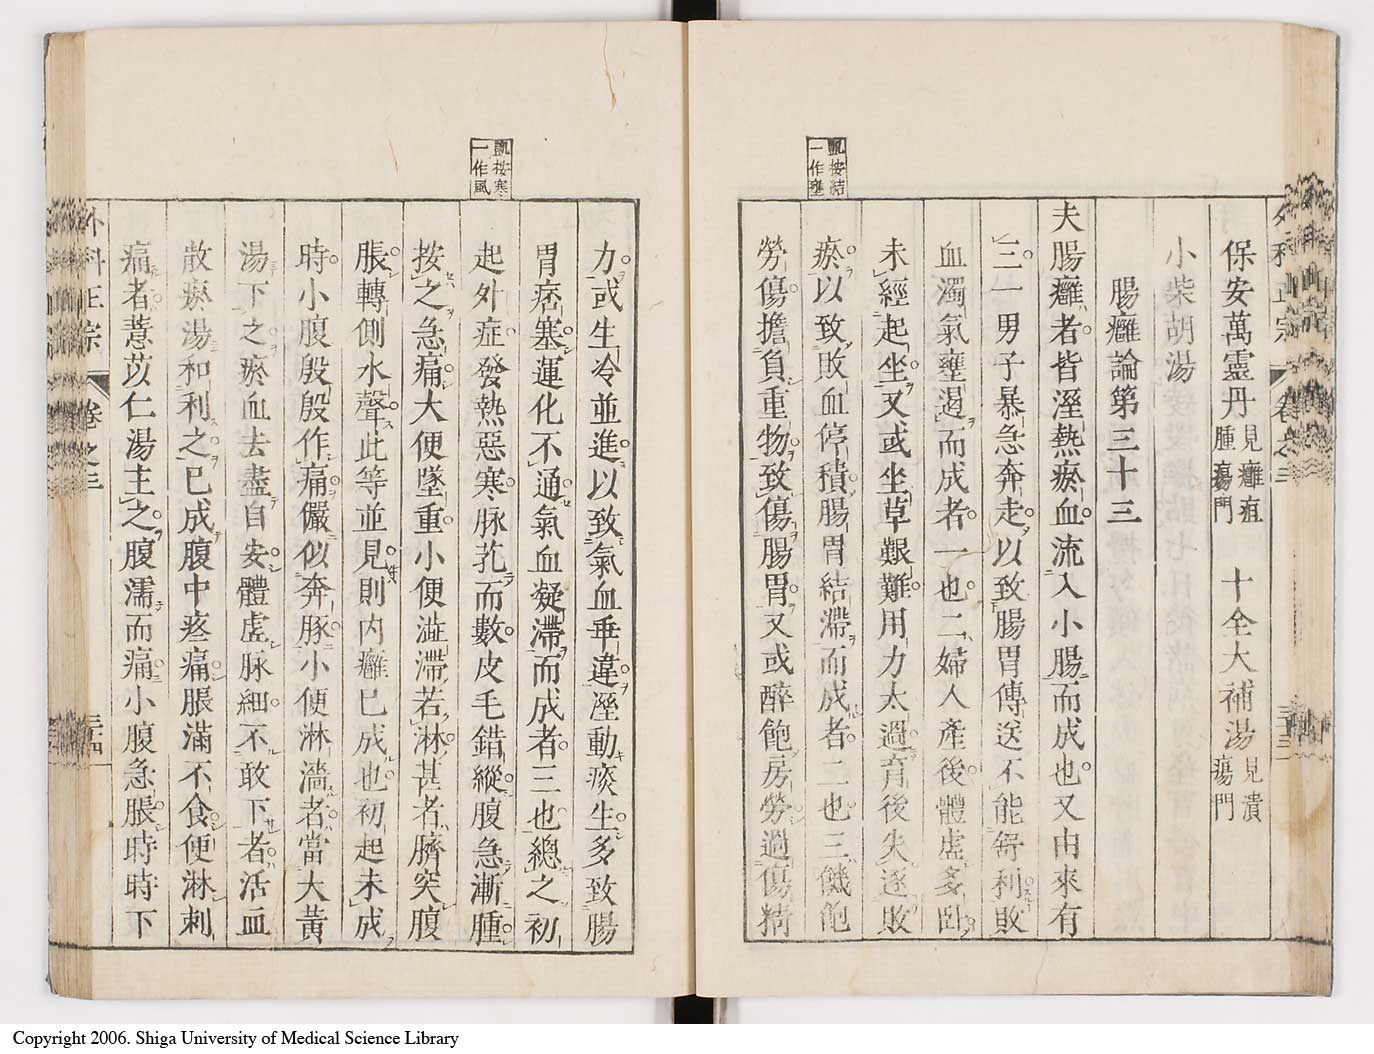 凱按結
一作壅
外科正宗 卷之三 三十三
保安萬靈丹 見癰疽腫瘍門 十全大補湯 見潰瘍門
小柴胡湯
腸癰論第三十三
夫腸癰者皆溼熱瘀血流入小腸而成也又由來有
三一男子暴急奔走以致腸胃傳送不能舒利敗
血濁氣壅遏而成者一也二婦人產後體虛多臥
未經起坐又或坐草艱難用力太過育後失逐敗
瘀以致敗血停積腸胃結滯而成者二也三饑飽
勞傷擔負重物致傷腸胃又或醉飽房勞過傷精
凱按寒
一作風
力或生冷並進以致氣血乖違溼動痰生多致腸
胃痞塞運化不通氣血凝滯而成者三也總之初
起外症發熱惡寒脉芤而數皮毛錯縱腹急漸腫
按之急痛大便墜重小便澁滯若淋甚者臍突腹
脹轉側水聲此等並見則内癰已成也初起未成
時小腹殷殷作痛儼似奔豚小便淋濇者當大黃
湯下之瘀血去盡自安體虛脉細不敢下者活血
散瘀湯和利之已成腹中疼痛脹滿不食便淋刺
痛者薏苡仁湯主之腹濡而痛小腹急脹時時下
外科正宗 卷之三 三十四
Copyright 2006. Shiga University of Medical Science Library